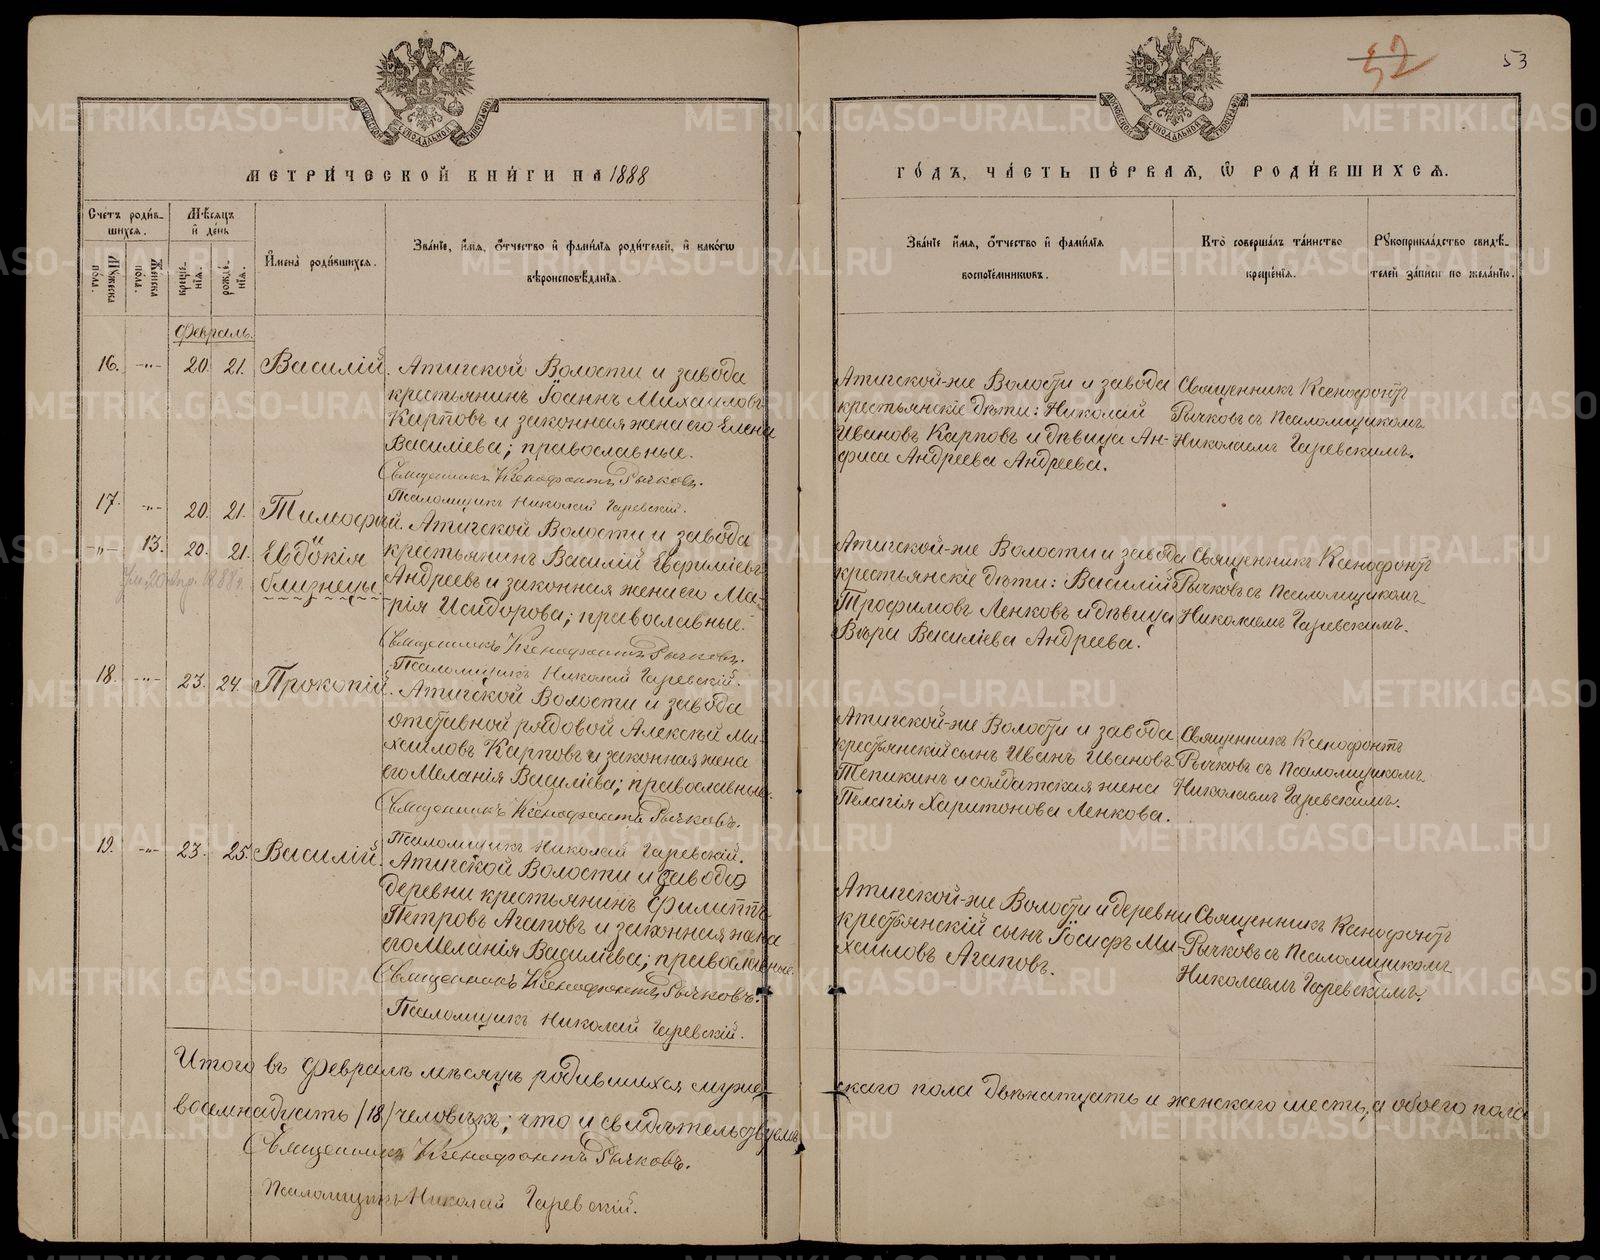 52
53
МЕТРИЧЕСКОЙ КНИГИ НА 1888
ГОДЪ, ЧАСТЬ ПЕРВАЯ, Ѡ РОДИВШИХСЯ.
Счетъ родив-
шихся.
Мѣсяцъ
и день
Мужеска
пола.
Женска
пола.
креще-
нія.
рожде-
нія.
Имена родившихся.
Званіе, имя, отчество и фамилія родителей, и какогѡ
вѣроисповѣданія.
Званіе имя, отчество и фамилія
воспріемникѡвъ.
Кто совершалъ таинство
крещенія.
Рукоприкладство свидѣ-
телей записи по желанію.
Февраль.
16. -„- 20. 21. Василій. Атигской Волости и завода
крестьянинъ Іоаннъ Михаиловъ
Карповъ и законная жена его Елена
Василіева; православные.
Священникъ Ксенофонтъ Рычковъ.
Псаломщикъ Николай Гаревскій.
Атигской-же Волости и завода
крестьянскіе дѣти: Николай
Ивановъ Карповъ и дѣвица Ан-
фиса Андреева Андреева.
Священникъ Ксенофонтъ
Рычковъ съ Псаломщикомъ
Николаемъ Гаревскимъ.
17. -„- 20. 21. Тимофей. Атигской Волости и завода
-„- 13. 20. 21. Евдокія
близнецы
крестьянинъ Василій Евфиміевъ
Андреевъ и законная жена его Ма-
рія Исидорова; православные.
Священникъ Ксенофонтъ Рычковъ.
Псаломщикъ Николай Гаревскій.
Атигской-же Волости и завода
крестьянскіе дѣти: Василій
Трофимовъ Ленковъ и дѣвица
Вѣра Василіева Андреева.
Священникъ Ксенофонтъ
Рычковъ съ Псаломщикомъ
Николаемъ Гаревскимъ.
18. -„- 23. 24. Прокопій. Атигской Волости и завода
отставной рядовой Алексѣй Ми-
хаиловъ Карповъ и законная жена
его Меланія Василіева; православные.
Священникъ Ксенофонтъ Рычковъ.
Псаломщикъ Николай Гаревскій.
Атигской-же Волости и завода
крестьянскій сынъ Иванъ Ивановъ
Тепикинъ и солдатская жена
Пелагія Харитонова Ленкова.
Священникъ Ксенофонтъ
Рычковъ съ Псаломщикомъ
Николаемъ Гаревскимъ.
19. -„- 23. 25. Василій. Атигской Волости и завода
деревни крестьянинъ Филиппъ
Петровъ Агаповъ и законная жена
его Меланія Василіева; православные.
Священникъ Ксенофонтъ Рычковъ.
Псаломщикъ Николай Гаревскій.
Атигской-же Волости и деревни
крестьянскій сынъ Іосифъ Ми-
хаиловъ Агаповъ.
Священникъ Ксенофонтъ
Рычковъ съ Псаломщикомъ
Николаемъ Гаревскимъ.
Итого въ Февралѣ мѣсяцѣ родившихся муже-
скаго пола двѣнатцать и женскаго шесть, а обоего пола
восемнадцать /18/ человѣкъ; что и свидѣтельствуемъ
Священникъ Ксенофонтъ Рычковъ.
Псаломщикъ Николай Гаревскій.
METRIKI.GASO-URAL.RU